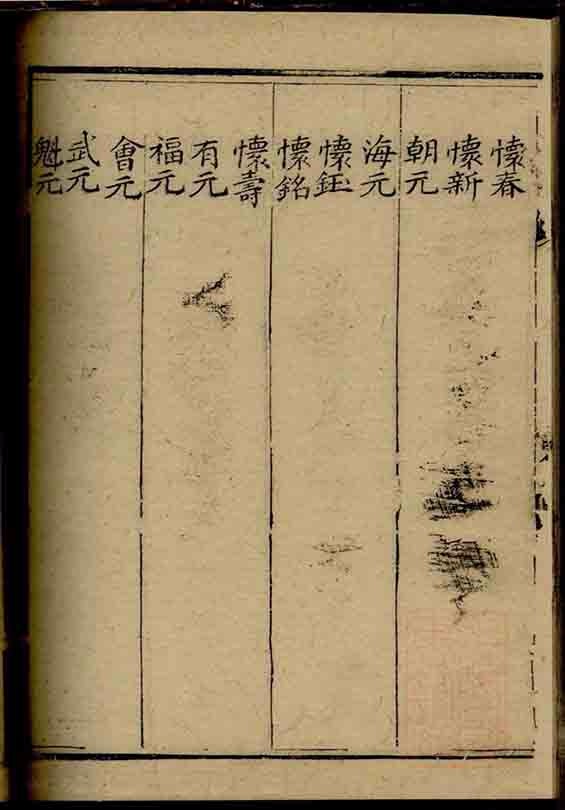 懷春
懷新
朝元
海元
懷鈺
懷銘
懷壽
有元
福元
會元
武元
魁元